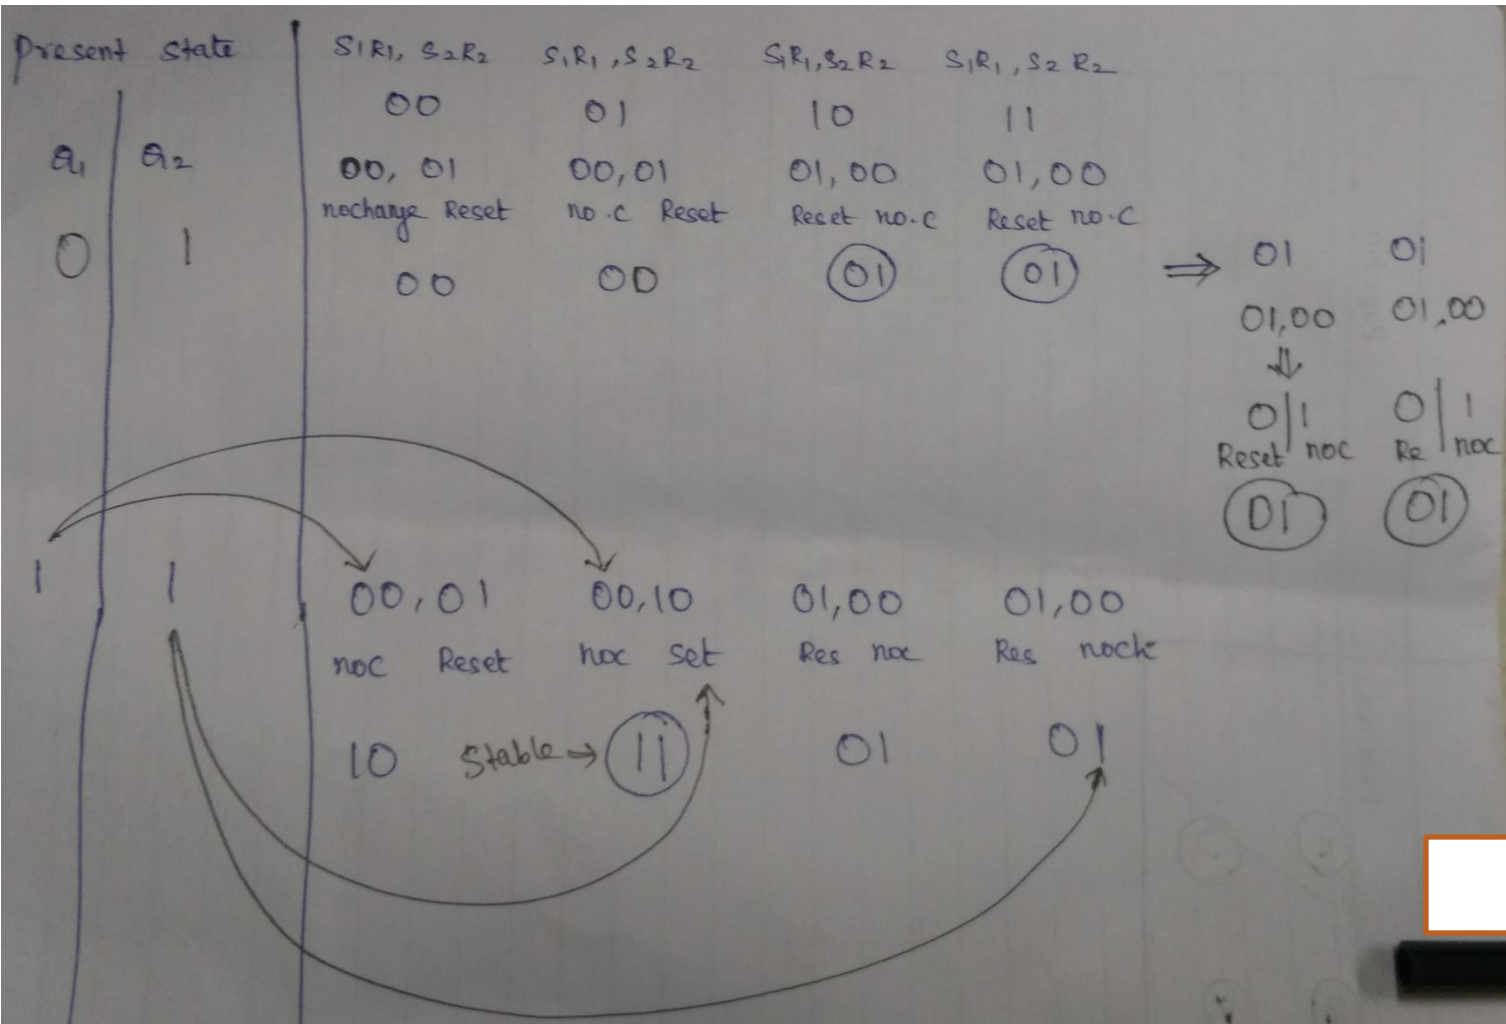 Present State S1R1, S2R2 S1R1, S2R2 S1R1, S2R2 S1R1, S2 R2
00 01 10 11
Q1 Q2 00, 01 00,01 01,00 01,00
nochange Reset no.c Reset Reset no.c Reset no.c
0 1 00 00 01 01 ⇒ 01 01
01,00 01,00
⇓
0|1 0|1
Reset noc Re noc
01 01
1 1 00,01 00,10 01,00 01,00
noc Reset noc set Res noc Res noch
10 Stable → 11 01 01